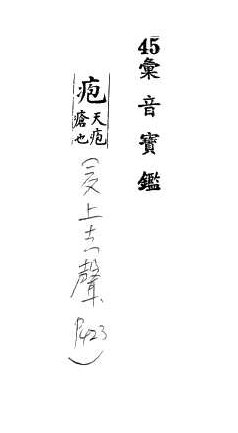 45彙音寶鑑
疱天疱瘡也(爻上去聲P423)